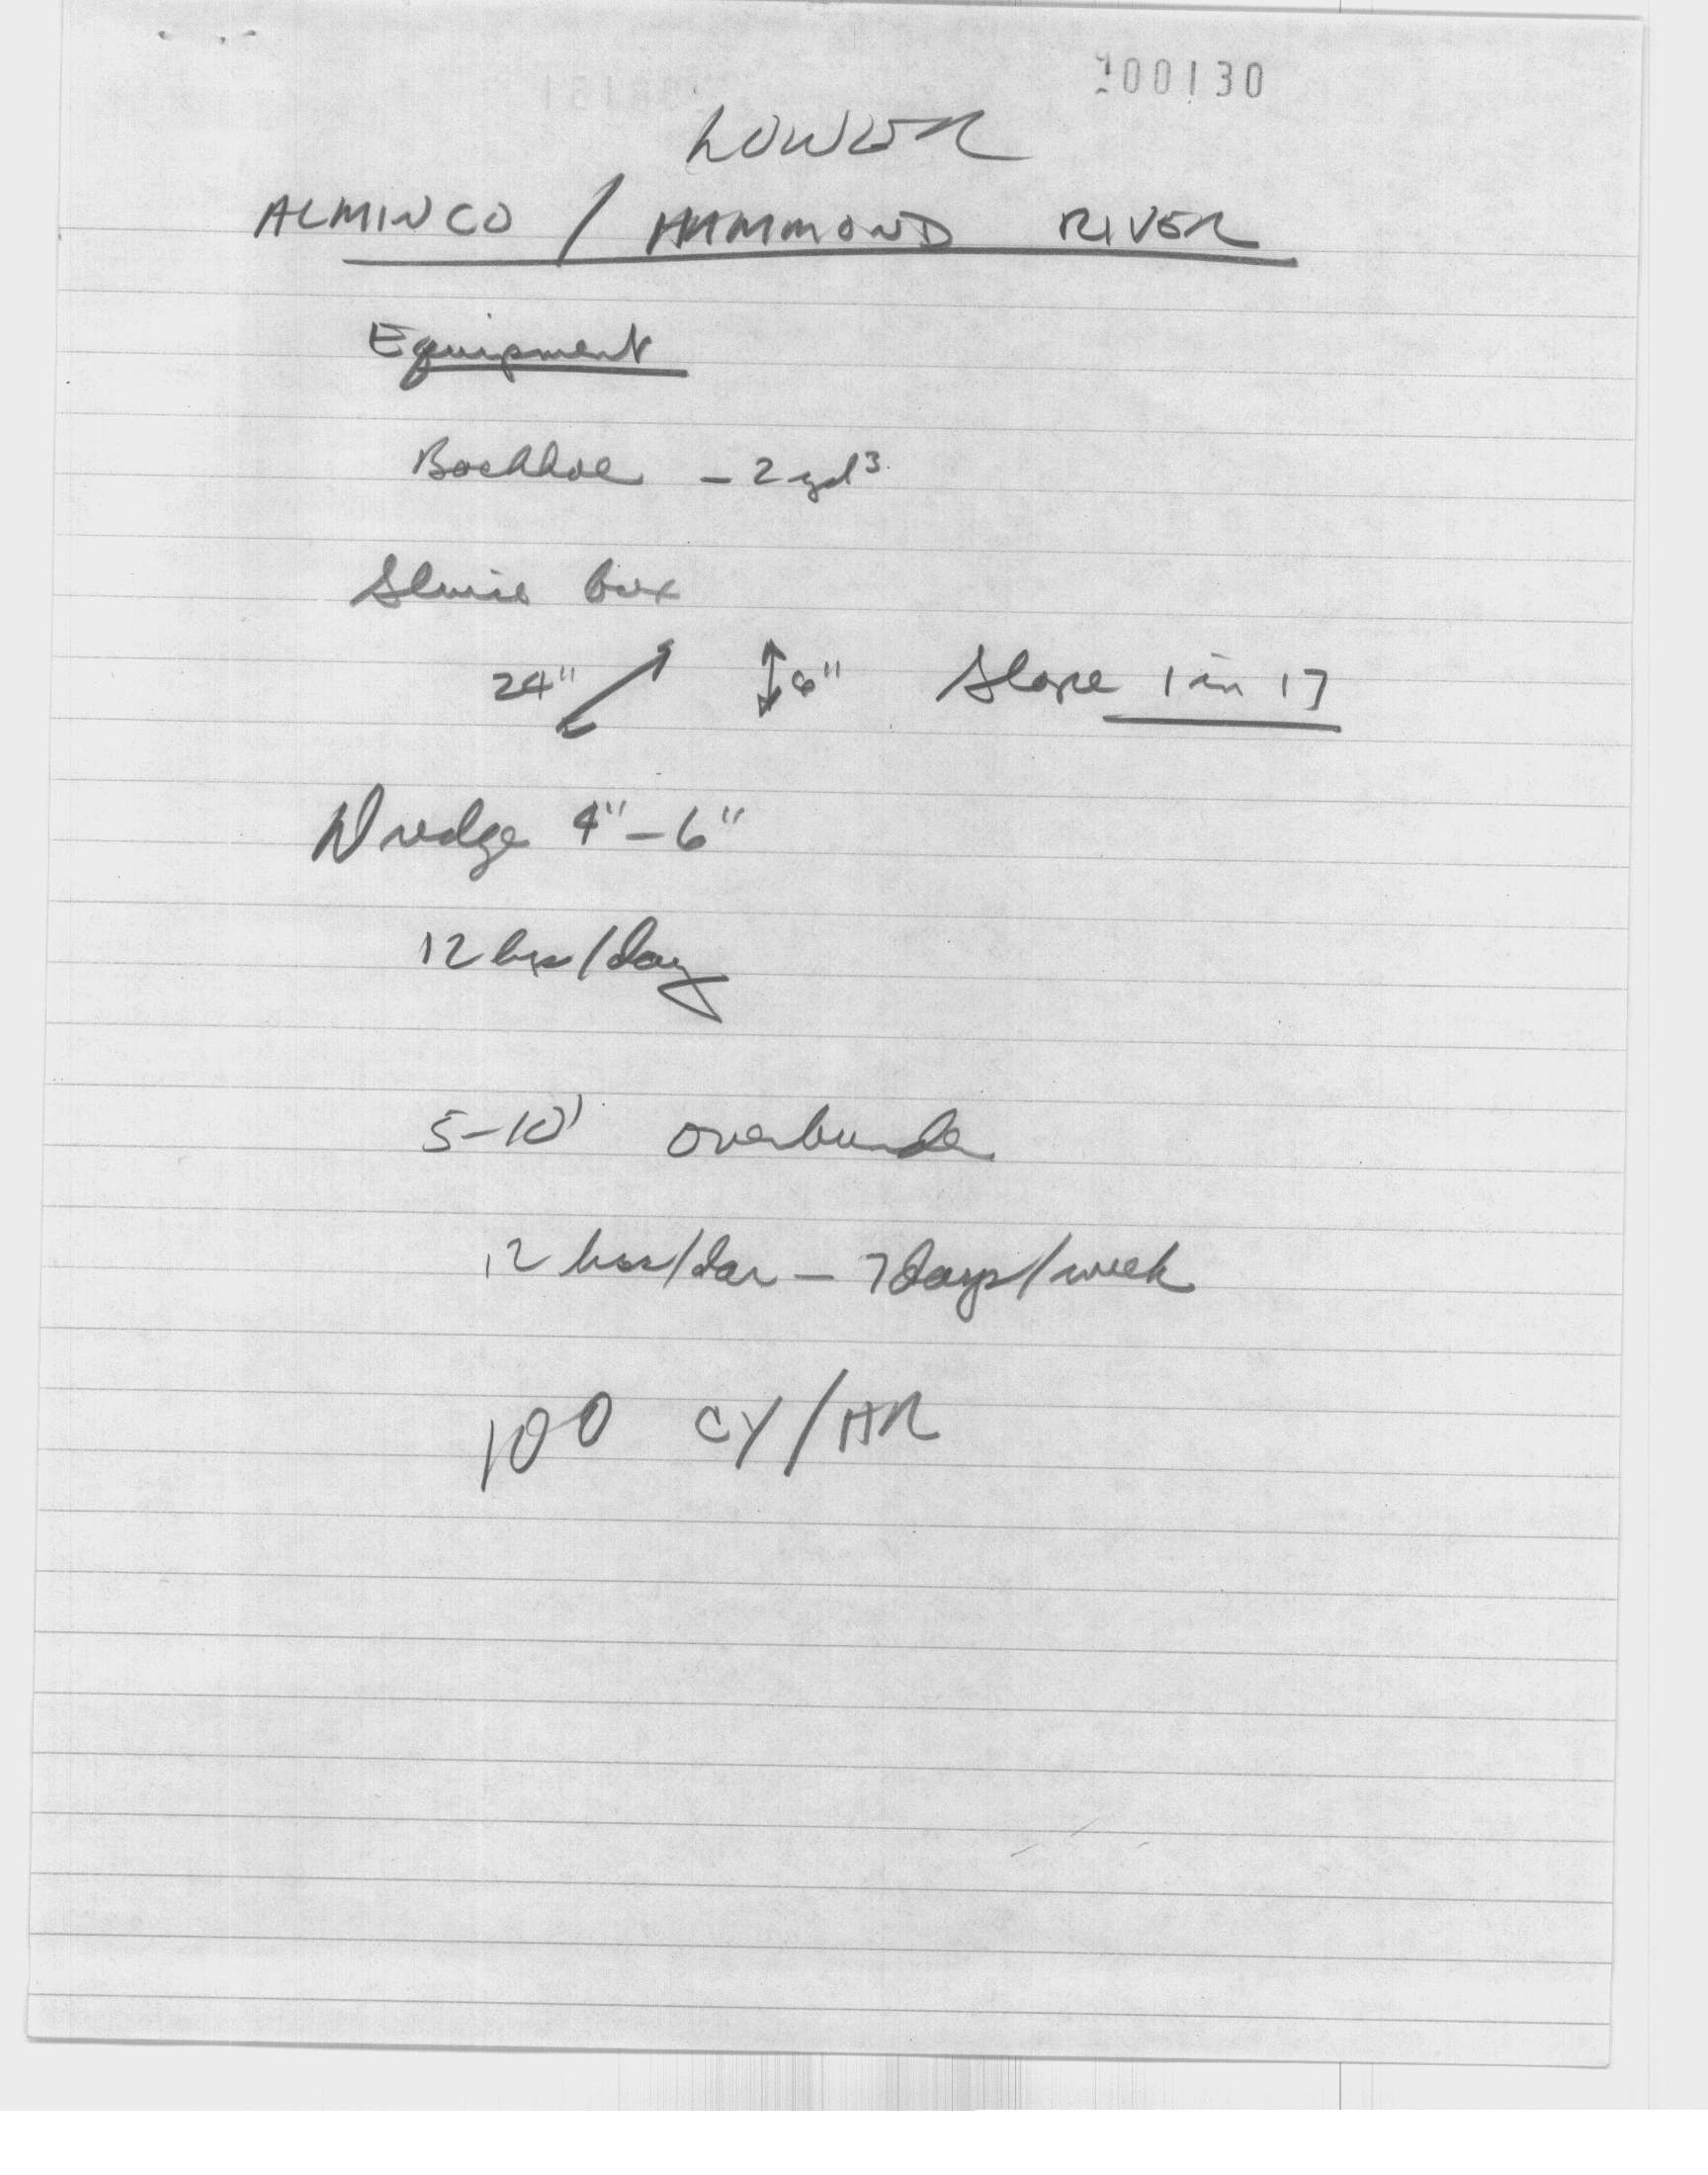 100130
LOWER
ALMINCO / HAMMOND RIVER
Equipment
Backhoe - 2 yd³
Sluice box
24" 8" Slope 1 in 17
Dredge 4"-6"
12 hrs/day
5-10' overburden
12 hrs/day - 7 days/week
100 CY/HR